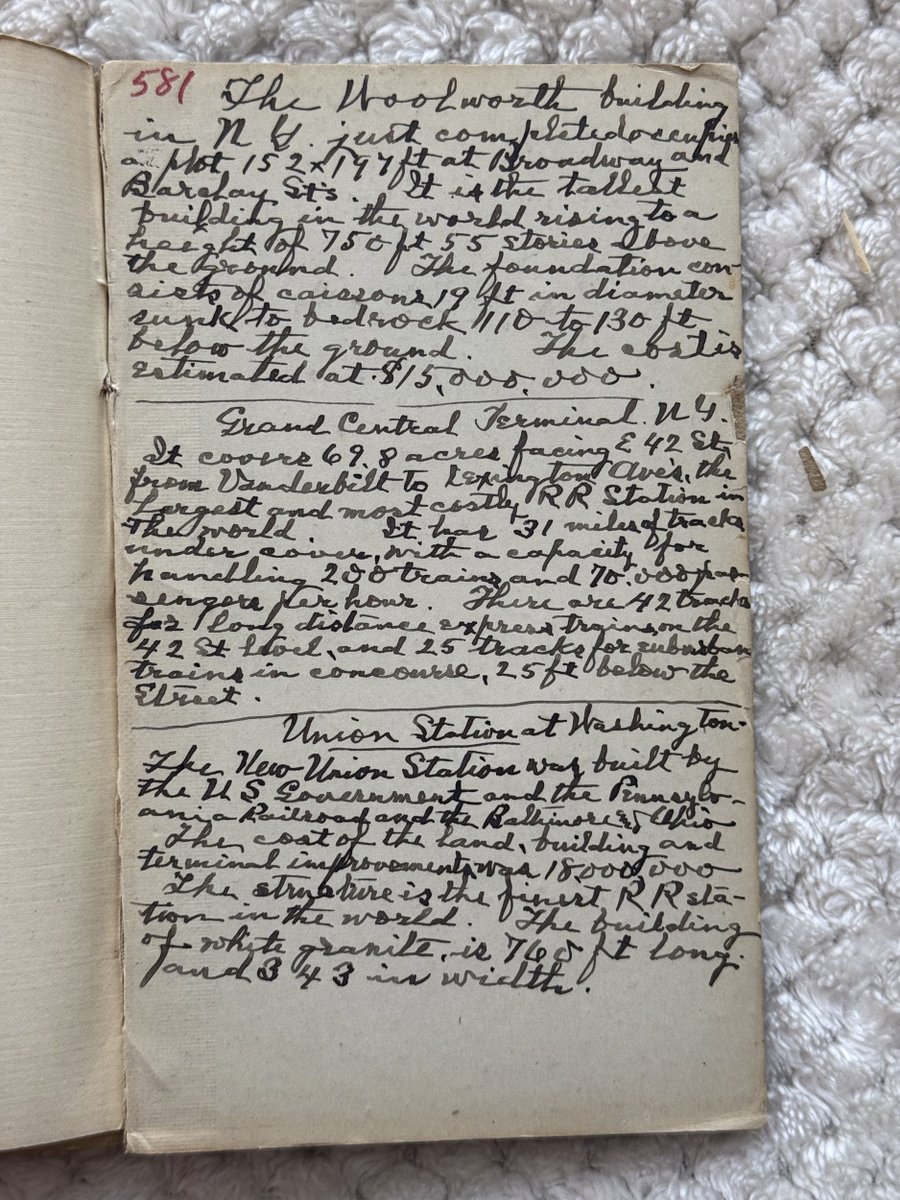 581
The Woolworth building
in N Y. just completed occupies
a plot 152x197 ft at Broadway and
Barclay Sts. It is the tallest
building in the world rising to a
height of 750 ft 55 stories above
the ground. The foundation con-
sists of caissons 19 ft in diameter
sunk to bedrock 110 to 130 ft
below the ground. The cost is
estimated at $15,000,000.
Grand Central Terminal. N Y.
It covers 69.8 acres facing E 42 St,
from Vanderbilt to Lexington Aves, the
largest and most costly R R Station in
The world. It has 31 miles of tracks
under cover, with a capacity for
handling 200 trains and 70.000 pas-
sengers per hour. There are 42 tracks
for long distance express trains on the
42 St level, and 25 tracks for suburban
trains in concourse, 25 ft below the
Street.
Union Station at Washington-
The New Union Station was built by
the U S Government and the Pennsylv-
ania Railroad and the Baltimore & Ohio
The cost of the land, building and
terminal improvements was 18.000.000
The structure is the finest R R sta-
tion in the world. The building
of white granite, is 760 ft long.
and 343 in width.